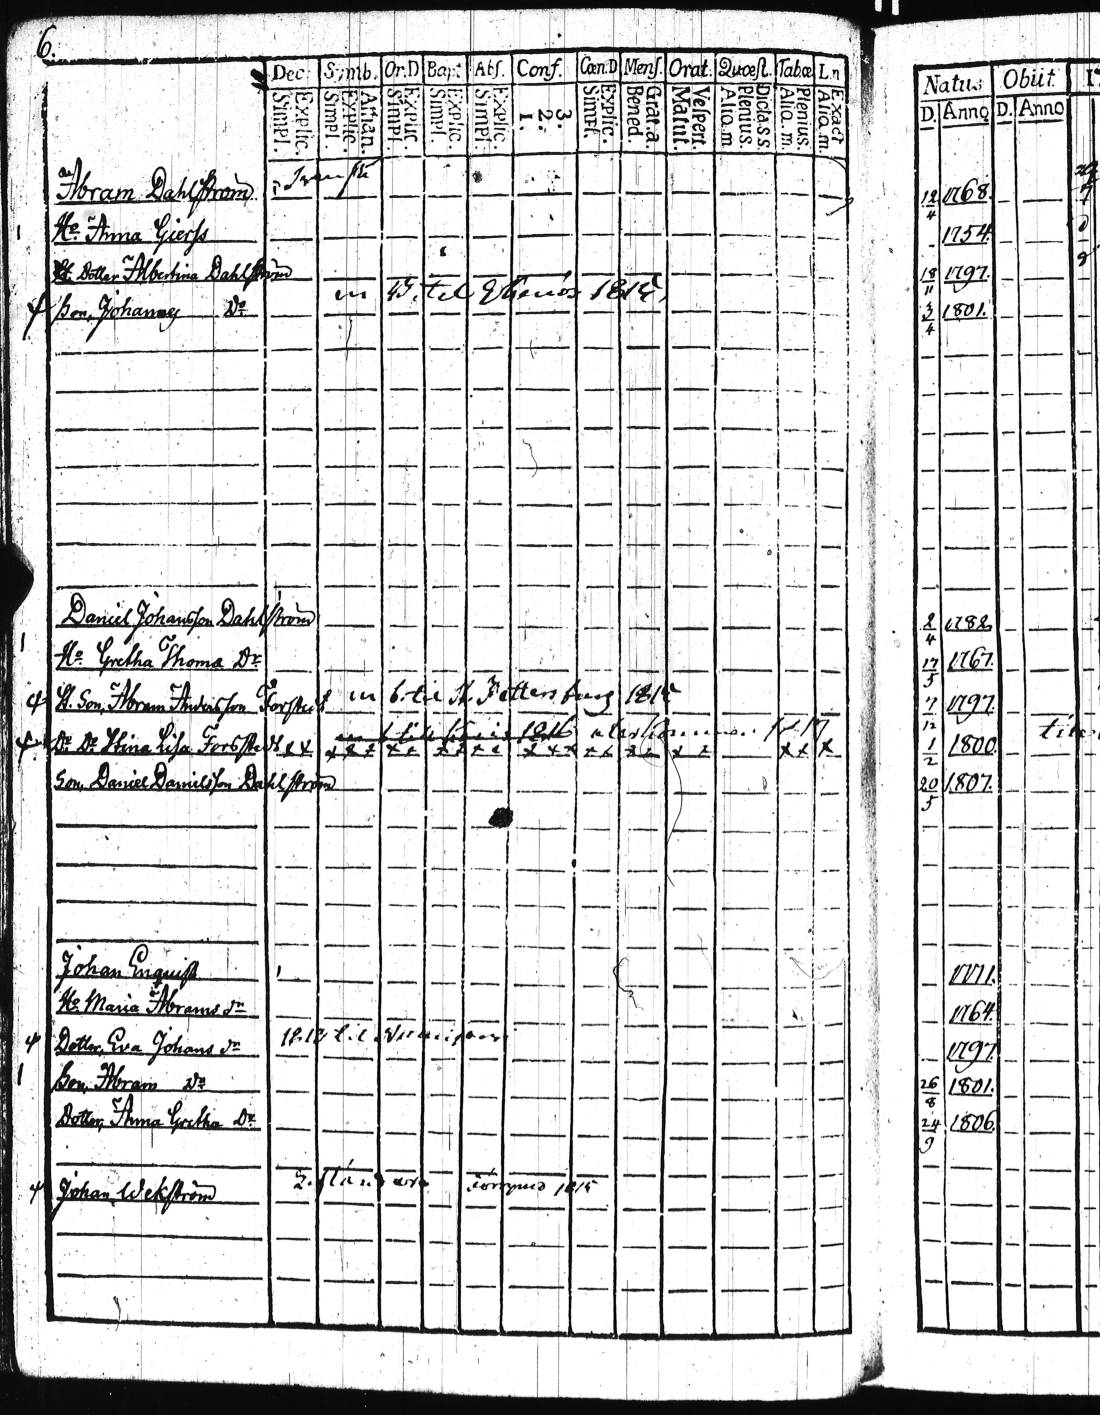 6.
Dec. Symb. Or.D Bapt Abs. Conf. Cœn.D Mens. Orat. Quæst. Tabæ L.n
Simpl. Explic. Simpl. Explic. Athan. Simpl. Explic. Simpl. Explic. Simpl. Explic. 1. 2. 3. Simpl. Explic. Bened. Grat.a. Matut. Vespert. Alio.m Plenius. Dicta.ss Alio.m. Plenius. Alio.m. Exact
Natus Obiit
D. Anno D. Anno
Abram Dahlström 12/4 1768.
Ho. Anna Gierss 1754.
Dotter Albertina Dahlström 18/11 1797.
Son, Johannes Do til 1815. 3/4 1801.
Daniel Johansson Dahlström 2/4 1782.
Ho. Gretha Thomæ Dr. 17/5 1767.
St. Son, Abram Andersson Forstedt til St. Pettersburg 1815 7/12 1797.
Dr. Dr. Stina Lisa Forsstedt 1816 återkommen 1817 1/2 1800.
Son, Daniel Danielsson Dahlström 20/5 1807.
Johan Enquist 1771.
Ho. Maria Abrams dr 1764.
Dotter, Eva Johans dr til 1797.
Son, Abram Do 26/8 1801.
Dotter, Anna Gretha Dr. 24/9 1806.
Johan Wekström 1815